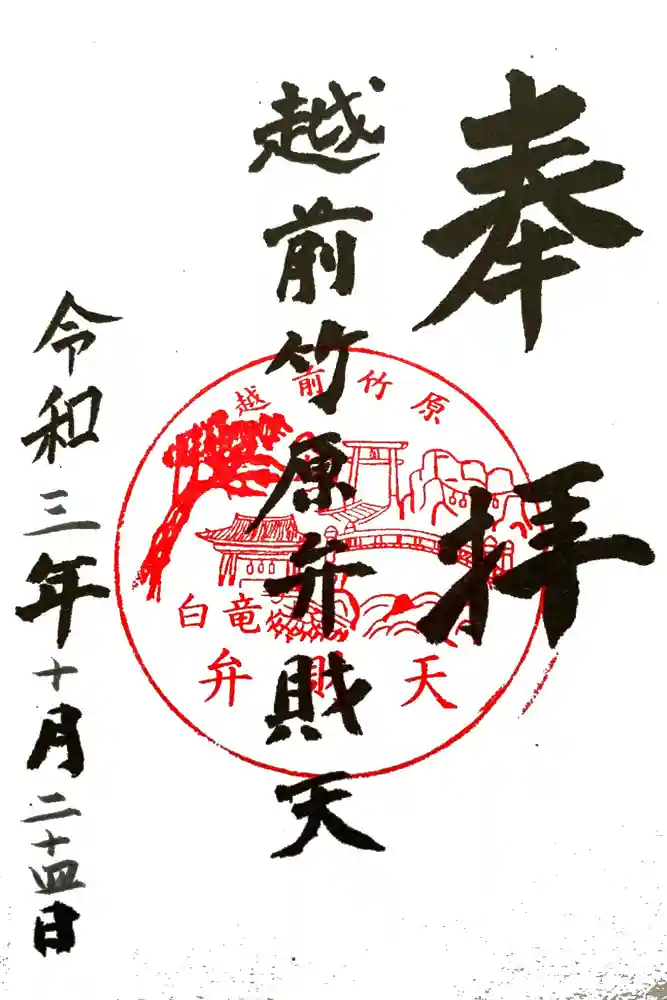 奉拝
越前竹原弁財天
令和三年十月二十四日
越前竹原
白竜
弁財天